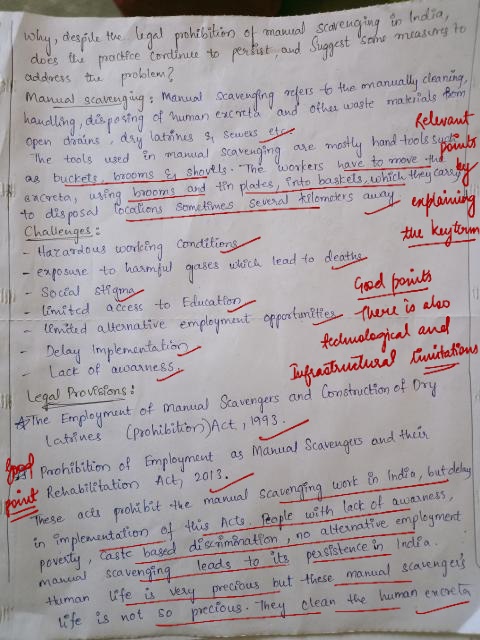 Why, despite the legal prohibition of manual scavenging in India,
does the practice continue to persist, and suggest some measures to
address the problem?
Manual scavenging: Manual Scavenging refers to the manually cleaning,
handling, disposing of human excreta and other waste materials from
open drains, dry latrines & sewers etc.
The tools used in manual scavenging are mostly hand tools such
as buckets, brooms & shovels. The workers have to move the
excreta, using brooms and tin plates, into baskets, which they carry
to disposal locations sometimes several kilometers away
Relevant
points
key
explaining
the keyterm
Challenges:
- Hazardous working conditions
- exposure to harmful gases which lead to deaths
- Social stigma
- limited access to Education
- limited alternative employment opportunities
- Delay Implementation
- Lack of awarness.
Good points
There is also
technological and
Infrastructural limitations
Legal Provisions:
The Employment of Manual Scavengers and Construction of Dry
Latrines (prohibition) Act, 1993.
Prohibition of Employment as Manual Scavengers and their
Rehabilitation Act, 2013.
Good
point
These acts prohibit the manual scavenging work in India, but delay
in implementation of this Acts. People with lack of awarness,
poverty, caste based discrimination, no alternative employment
manual scavenging leads to its persistence in India.
Human life is very precious but these manual scavengers
life is not so precious. They clean the human excreta